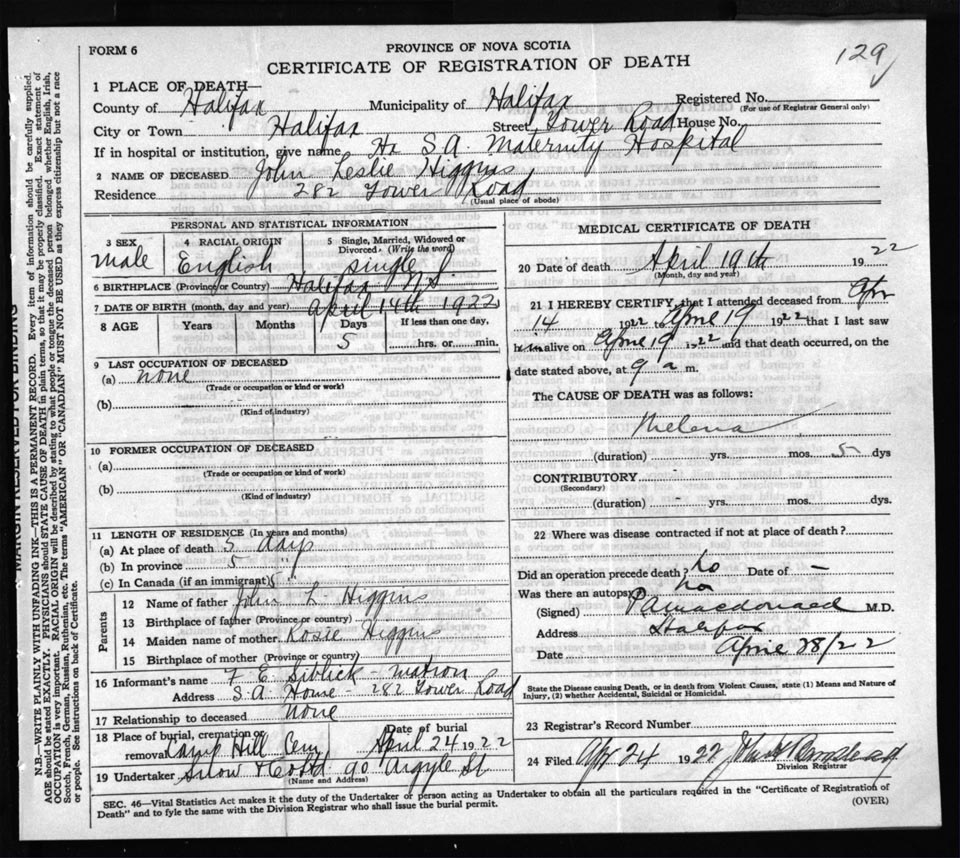 FORM 6
PROVINCE OF NOVA SCOTIA
129
CERTIFICATE OF REGISTRATION OF DEATH
1 PLACE OF DEATH—
County of Halifax Municipality of Halifax Registered No.
(For use of Registrar General only)
City or Town Halifax Street Tower Road House No.
If in hospital or institution, give name Hx S.A. Maternity Hospital
2 NAME OF DECEASED John Leslie Higgins
Residence 282 Tower Road
(Usual place of abode)
PERSONAL AND STATISTICAL INFORMATION
3 SEX 4 RACIAL ORIGIN 5 Single, Married, Widowed or Divorced (Write the word)
male English single
6 BIRTHPLACE (Province or Country) Halifax N.S
7 DATE OF BIRTH (month, day and year) April 14th 1922
8 AGE Years Months Days If less than one day,
5 hrs. or min.
9 LAST OCCUPATION OF DECEASED
(a) none
(Trade or occupation or kind or work)
(b)
(Kind of industry)
10 FORMER OCCUPATION OF DECEASED
(a)
(Trade or occupation or kind or work)
(b)
(Kind of industry)
11 LENGTH OF RESIDENCE (in years and months)
(a) At place of death 5 days
(b) In province 5 "
(c) In Canada (if an immigrant) 5 "
Parents
12 Name of father John L. Higgins
13 Birthplace of father (Province or country)
14 Maiden name of mother Rosie Higgins
15 Birthplace of mother (Province or country)
16 Informant's name F E matron
Address S.A. House - 282 Tower Road
17 Relationship to deceased none
18 Place of burial, cremation or removal Camp Hill Cem Date of burial April 24 1922
19 Undertaker Snow & Co Ltd 90 Argyle St
(Name and Address)
MEDICAL CERTIFICATE OF DEATH
20 Date of death April 19th 1922
(Month, day and year)
21 I HEREBY CERTIFY, that I attended deceased from Apr
14 1922 to April 19 1922 that I last saw
h im alive on April 19 1922 and that death occurred, on the
date stated above, at 9 a m.
The CAUSE OF DEATH was as follows:
Melena
(duration) yrs. mos. 5 dys
CONTRIBUTORY
(Secondary)
(duration) - yrs. mos. dys.
22 Where was disease contracted if not at place of death?
Did an operation precede death? no Date of –
Was there an autopsy? no
(Signed) P A Macdonald M.D.
Address Halifax
Date April 28/22
State the Disease causing Death, or in death from Violent Causes, state (1) Means and Nature of
Injury, (2) whether Accidental, Suicidal or Homicidal.
23 Registrar's Record Number
24 Filed Apr 24 1922
Division Registrar
SEC. 46—Vital Statistics Act makes it the duty of the Undertaker or person acting as Undertaker to obtain all the particulars required in the "Certificate of Registration of
Death" and to fyle the same with the Division Registrar who shall issue the burial permit.
(OVER)
MARGIN RESERVED FOR BINDING
N.B.—WRITE PLAINLY WITH UNFADING INK—THIS IS A PERMANENT RECORD. Every item of information should be carefully supplied.
AGE should be stated EXACTLY. PHYSICIANS should STATE CAUSE OF DEATH in plain terms, so that it may be properly classified. Exact statement of
OCCUPATION is very important. RACIAL ORIGIN will be described by stating to what people or tongue the deceased person belonged whether English, Irish,
Scotch, French, German, Russian, Ruthenian, etc. The terms "AMERICAN" OR "CANADIAN" MUST NOT BE USED as they express citizenship but not a race
or people. See instructions on back of Certificate.